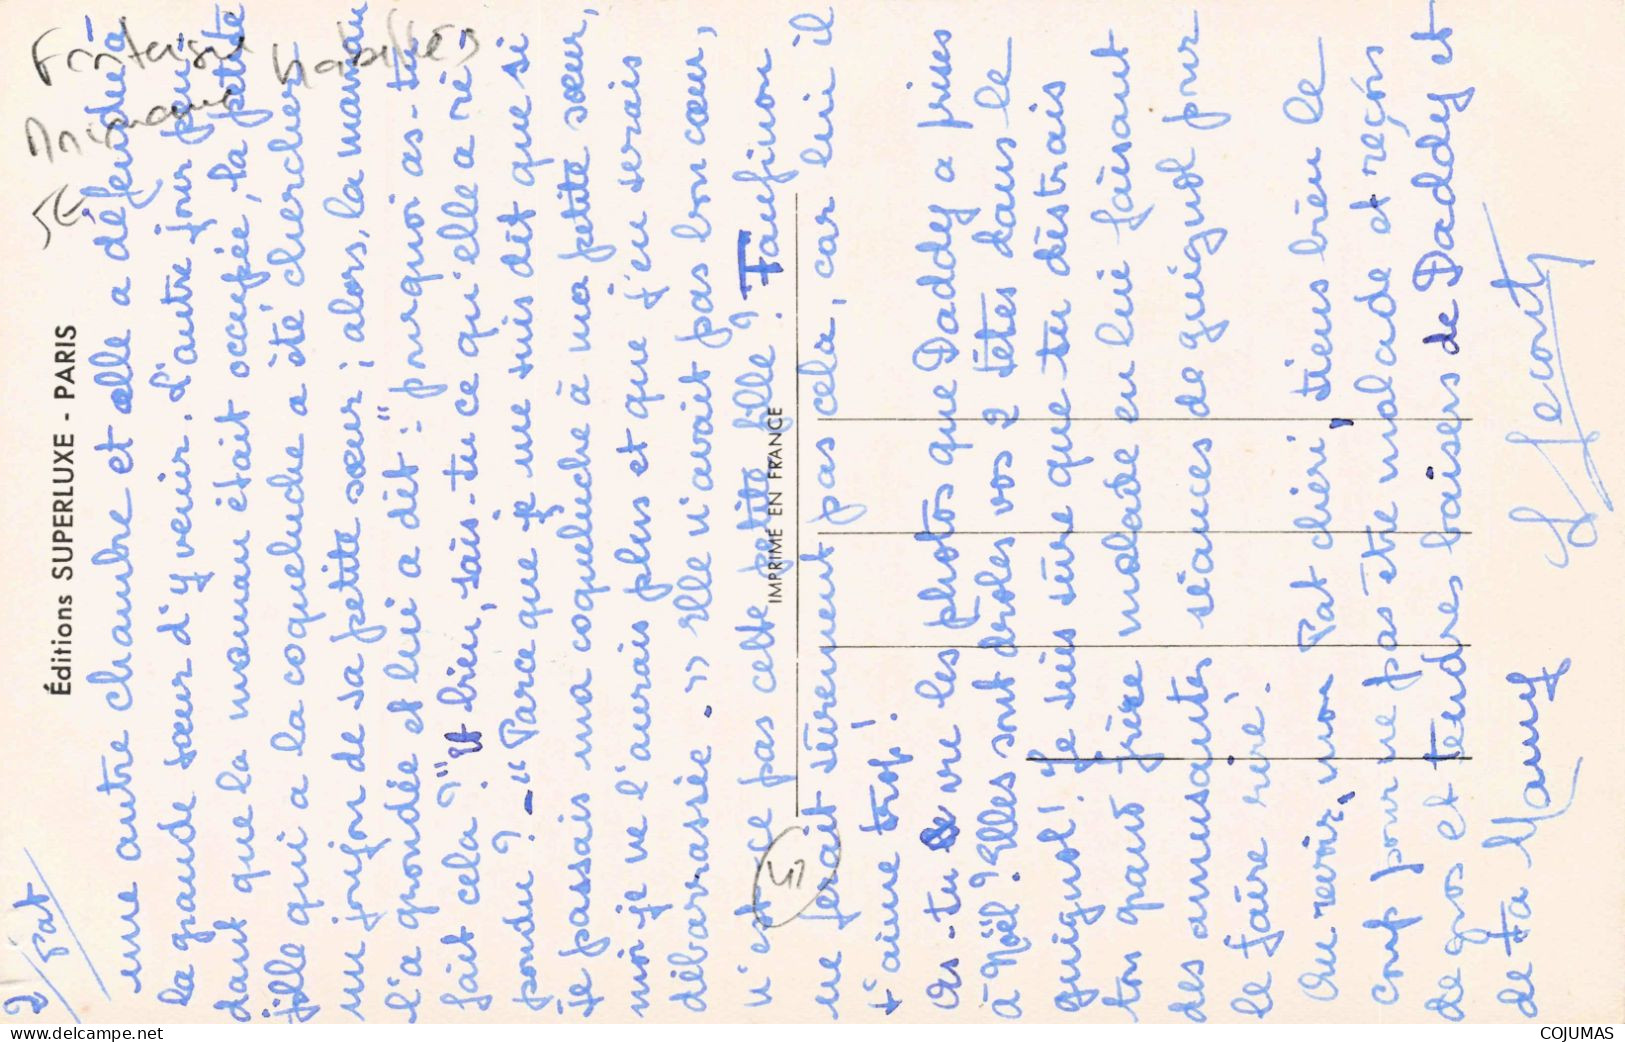 2/ Pat
une autre chambre et elle a défendu à
la grande sœur d'y venir. L'autre jour pen-
dant que la maman était occupée, la petite
fille qui a la coqueluche a été chercher
un jupon de sa petite sœur ; alors, la maman
l'a grondée et lui a dit : " pourquoi as-tu
fait cela ? " " Et bien, sais-tu ce qu'elle a ré-
pondu ? - " Parce que je me suis dit que si
je passais ma coqueluche à ma petite sœur,
moi je ne l'aurais plus et que j'en serais
débarrassée. " Elle n'avait pas bon cœur,
n'est-ce pas cette petite fille ? Fanfinon
ne ferait sûrement pas cela, car lui il
t'aime trop !
As-tu vu les photos que Daddy a prises
à Noël ? Elles sont drôles vos 2 têtes dans le
guignol ! Je suis sûre que tu distrais
ton grand frère malade en lui faisant
des amusantes séances de guignol pour
le faire rire.
Au revoir, mon Pat chéri, tiens bien le
coup pour ne pas être malade et reçois
de gros et tendres baisers de Daddy et
de ta Mamy
Éditions SUPERLUXE - PARIS
IMPRIMÉ EN FRANCE
Fantaisie
Animaux habillés
5€
delcampe.net
COJUMAS